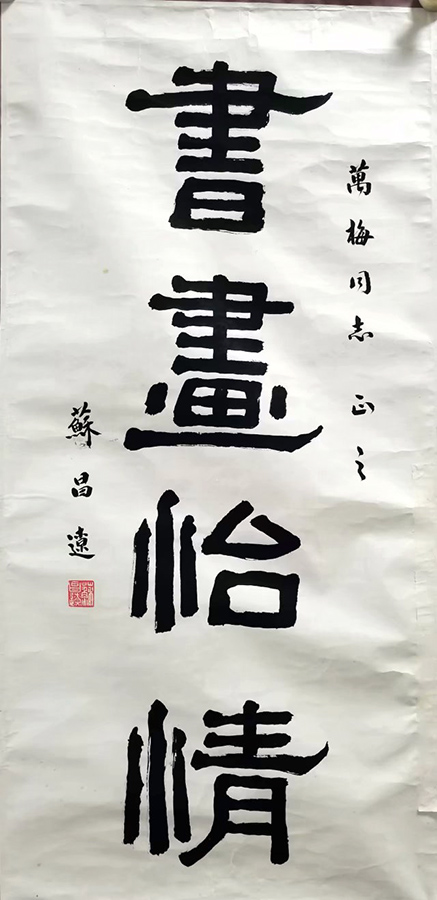 萬梅同志 正之
書畫怡情
蘇昌遠